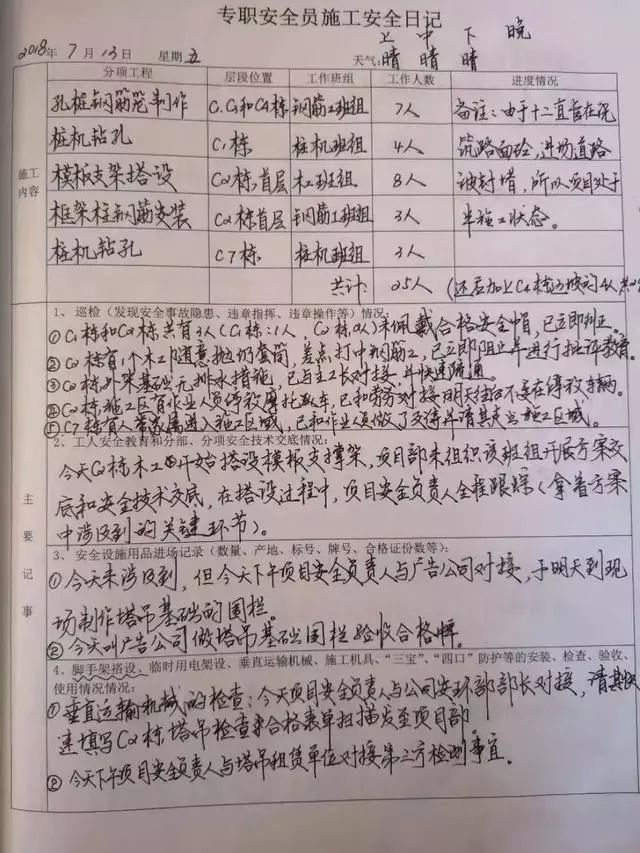 专职安全员施工安全日记
上 中 下 晚
2018年 7月 13日 星期五 天气：晴 晴 晴
分项工程 层段位置 工作班组 工作人数 进度情况
施工内容
孔桩钢筋笼制作 C1和C2栋 钢筋工班组 7人 备注：由于十二直管在浇
桩机钻孔 C1栋 桩机班组 4人 筑路面砼，进场道路
模板支架搭设 C2栋首层 木工班组 8人 被封堵，所以项目处于
框架柱钢筋安装 C2栋首层 钢筋工班组 3人 半施工状态。
桩机钻孔 C7栋 桩机班组 3人
共计： 25人
主要记事
1、巡检（发现安全事故隐患、违章指挥、违章操作等）情况：
①C1栋和C2栋共有3人（C1栋：1人，C2栋2人）未佩戴合格安全帽，已立即纠正。
②C2栋有1个木工随意抛扔套筒，差点打中钢筋工，已立即阻止并进行批评教育。
③C2栋外架基础无排水措施，已与主工长对接，并快速疏通。
④C2栋施工区有作业人员停放摩托车，已和劳务对接明天往后不要在停放车辆。
⑤C7栋有人带家属进入施工区域，已和作业人员做了交待并请其走出施工区域。
2、工人安全教育和分部、分项安全技术交底情况：
今天C2栋木工开始搭设模板支撑架，项目部未组织该班组开展方案交
底和安全技术交底，在搭设过程中，项目安全负责人全程跟踪（拿着方案
中涉及到的关键环节）。
3、安全设施用品进场记录（数量、产地、标号、牌号、合格证份数等）：
①今天未涉及到，但今天下午项目安全负责人与广告公司对接，于明天到现
场制作塔吊基础的围栏。
②今天叫广告公司做塔吊基础围栏验收合格牌。
4、脚手架搭设、临时用电架设、垂直运输机械、施工机具、“三宝”、“四口”防护等的安装、检查、验收、
使用情况情况：
①垂直运输机械的检查：今天项目安全负责人与公司安环部部长对接，请其快
速填写C2栋塔吊检查合格表单扫描发至项目部。
②今天下午项目安全负责人与塔吊租赁单位对接第三方检测事宜。